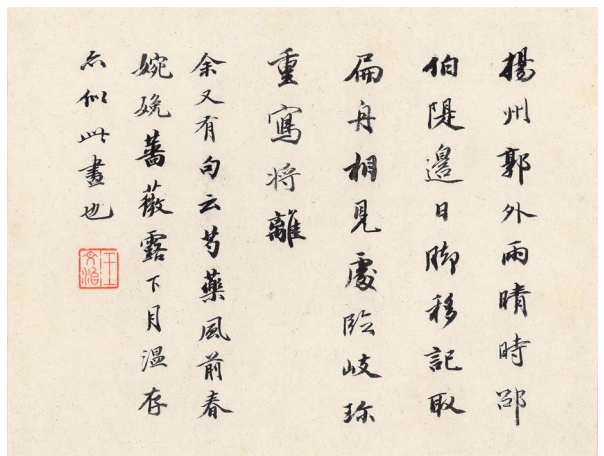 揚州郭外雨晴時邵
伯隄邊日腳移記取
扁舟相見處臨岐珎
重寫將離
余又有句云芍藥風前春
婉娩薔薇露下月溫存
亦似此畫也
王文治